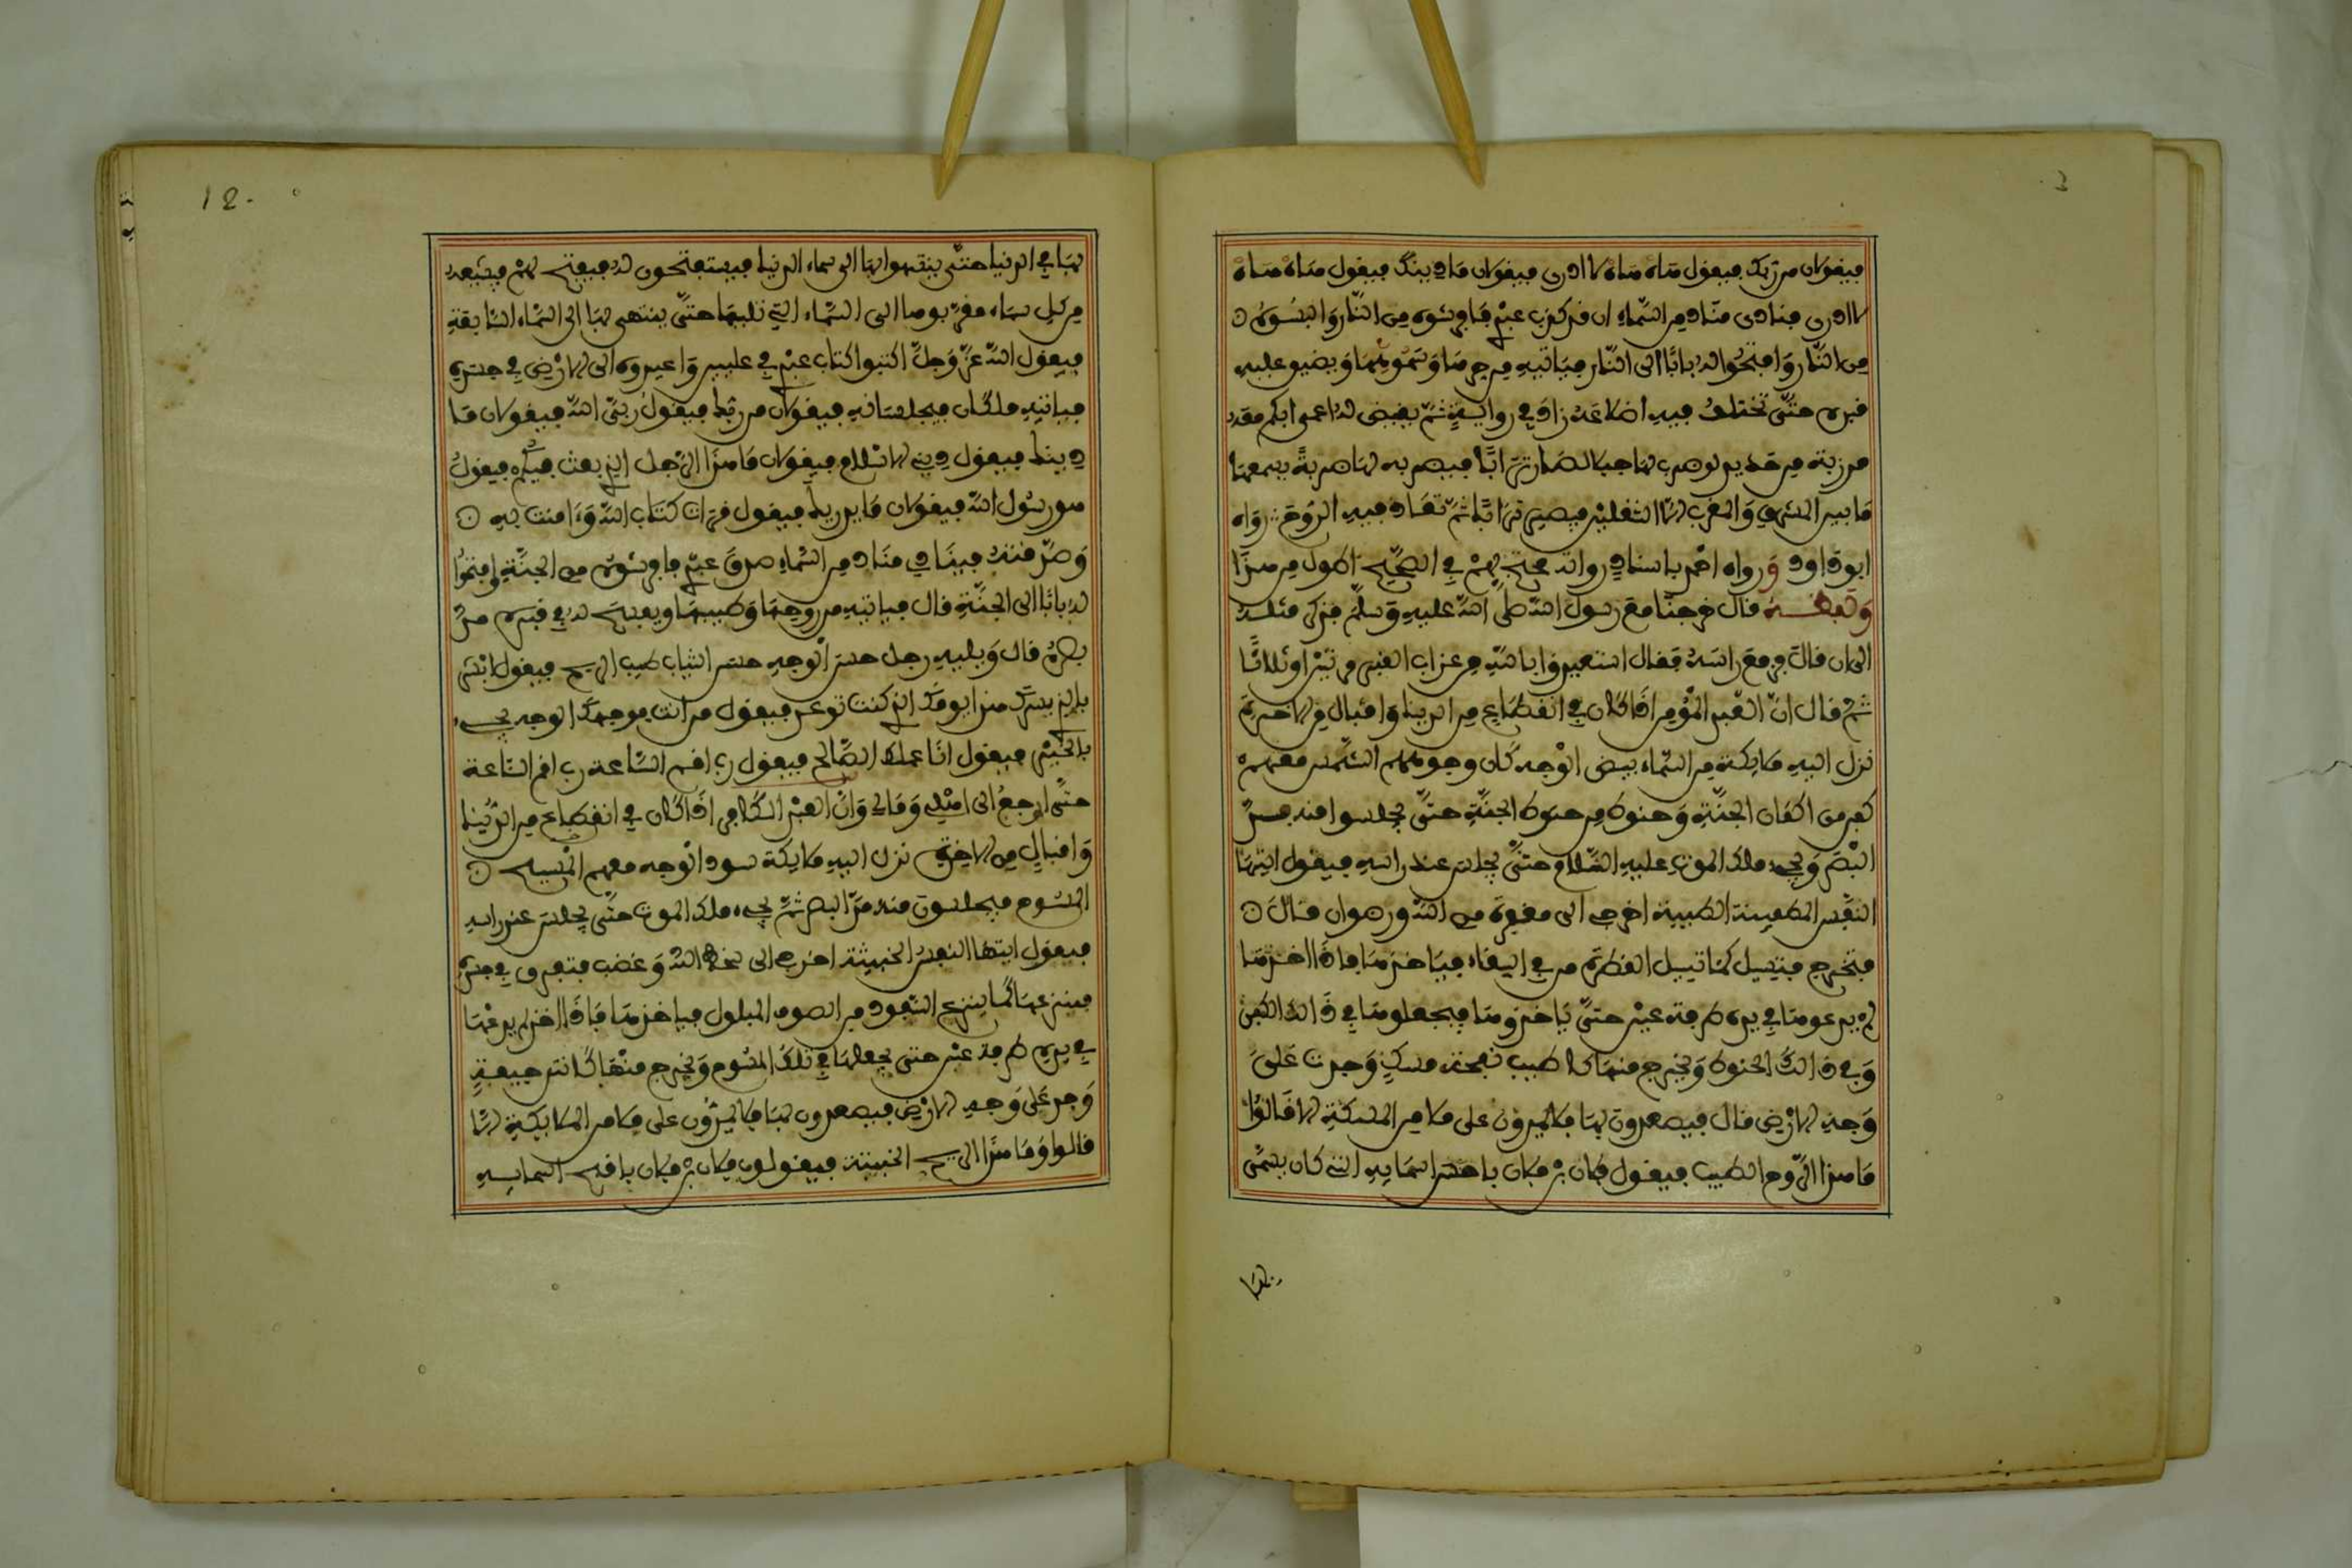 فيقولان من ربك فيقول هاه هاه لا ادرى فيقولان ما دينك فيقول هاه هاه
لا ادرى فينادى مناد من السماء ان قد كذب عبدى فافرشوه من النار والبسوه
من النار وافتحوا له بابا الى النار فياتيه من حرها وسمومها ويضيق عليه
قبره حتى تختلف فيه اضلاعه زاد في رواية ثم يقيض له اعمى ابكم معه
مرزبة من حديد لو ضرب بها جبلا لصار ترابا فيضربه بها ضربة يسمعها
ما بين المشرق والمغرب الا الثقلين فيصير ترابا ثم تعاد فيه الروح رواه
ابو داود ورواه احمد باسناد رواته محتج بهم في الصحيح اطول من هذا
ولفظه قال خرجنا مع رسول الله صلى الله عليه وسلم فذكر مثله
الى ان قال فرفع راسه فقال استعيذوا بالله من عذاب القبر مرتين او ثلاثا
ثم قال ان العبد المؤمن اذا كان في انقطاع من الدنيا واقبال من الاخرة
نزل اليه ملائكة من السماء بيض الوجه كان وجوههم الشمس معهم
كفن من اكفان الجنة وحنوط من حنوط الجنة حتى يجلسوا منه مد
البصر ويجيء ملك الموت عليه السلام حتى يجلس عند راسه فيقول ايتها
النفس المطمينة الطيبة اخرجي الى مغفرة من الله ورضوان قال
فتخرج فتسيل كما تسيل القطرة من في السقاء فياخذها فاذا اخذها
لم يدعوها في يده طرفة عين حتى ياخذوها فيجعلوها في ذالك الكفن
وفي ذالك الحنوط ويخرج منها كاطيب نفحة مسك وجدت على
وجه الارض قال فيصعدون بها فلا يمرون على ملا من الملئكة الا قالوا
ما هذا الروح الطيب فيقول فلان بن فلان باحسن اسمايه التي كان يسمى
بها
بها في الدنيا حتى ينتهوا بها الى سماء الدنيا فيستفتحون له فيفتح لهم فيشيعه
من كل سماء مقربوها الى السماء التي تليها حتى ينتهى بها الى السماء السابعة
فيقول الله عز وجل اكتبوا كتاب عبدى في عليين واعيدوه الى الارض في جسده
فياتيه ملكان فيجلسانه فيقولان من ربك فيقول ربي الله فيقولان ما
دينك فيقول ديني الاسلام فيقولان ما هذا الرجل الذي بعث فيكم فيقول
هو رسول الله فيقولان ما يدريك فيقول قرات كتاب الله وءامنت به
وصدقته فينادي مناد من السماء صدق عبدي فافرشوه من الجنة وافتحوا
له بابا الى الجنة قال فياتيه من روحها وطيبها ويفسح له في قبره مد
بصره قال وياتيه رجل حسن الوجه حسن الثياب طيب الريح فيقول ابشر
بالذي يسرك هذا يومك الذي كنت توعد فيقول من انت فوجهك الوجه يجيء
بالخير فيقول انا عملك الصالح فيقول رب اقم الساعة رب اقم الساعة
حتى ارجع الى اهلي ومالي وان العبد الكافر اذا كان في انقطاع من الدنيا
واقبال من الاخرة نزل اليه ملايكة سود الوجه معهم المسيح
المسوح فيجلسون منه مد البصر ثم يجيء ملك الموت حتى يجلس عند راسه
فيقول ايتها النفس الخبيثة اخرجي الى سخط الله وغضب فتفرق في جسده
فينزعها كما ينزع السفود من الصوف المبلول فياخذها فاذا اخذ لم يدعها
في يده طرفة عين حتى يجعلها في تلك المسوح ويخرج منها كانتن جيفة
وجد على وجه الارض فيصعدون بها فلا يمرون على ملا من الملايكة الا
قالوا وما هذا الريح الخبيثة فيقولون فلان بن فلان باقبح اسمايه
12